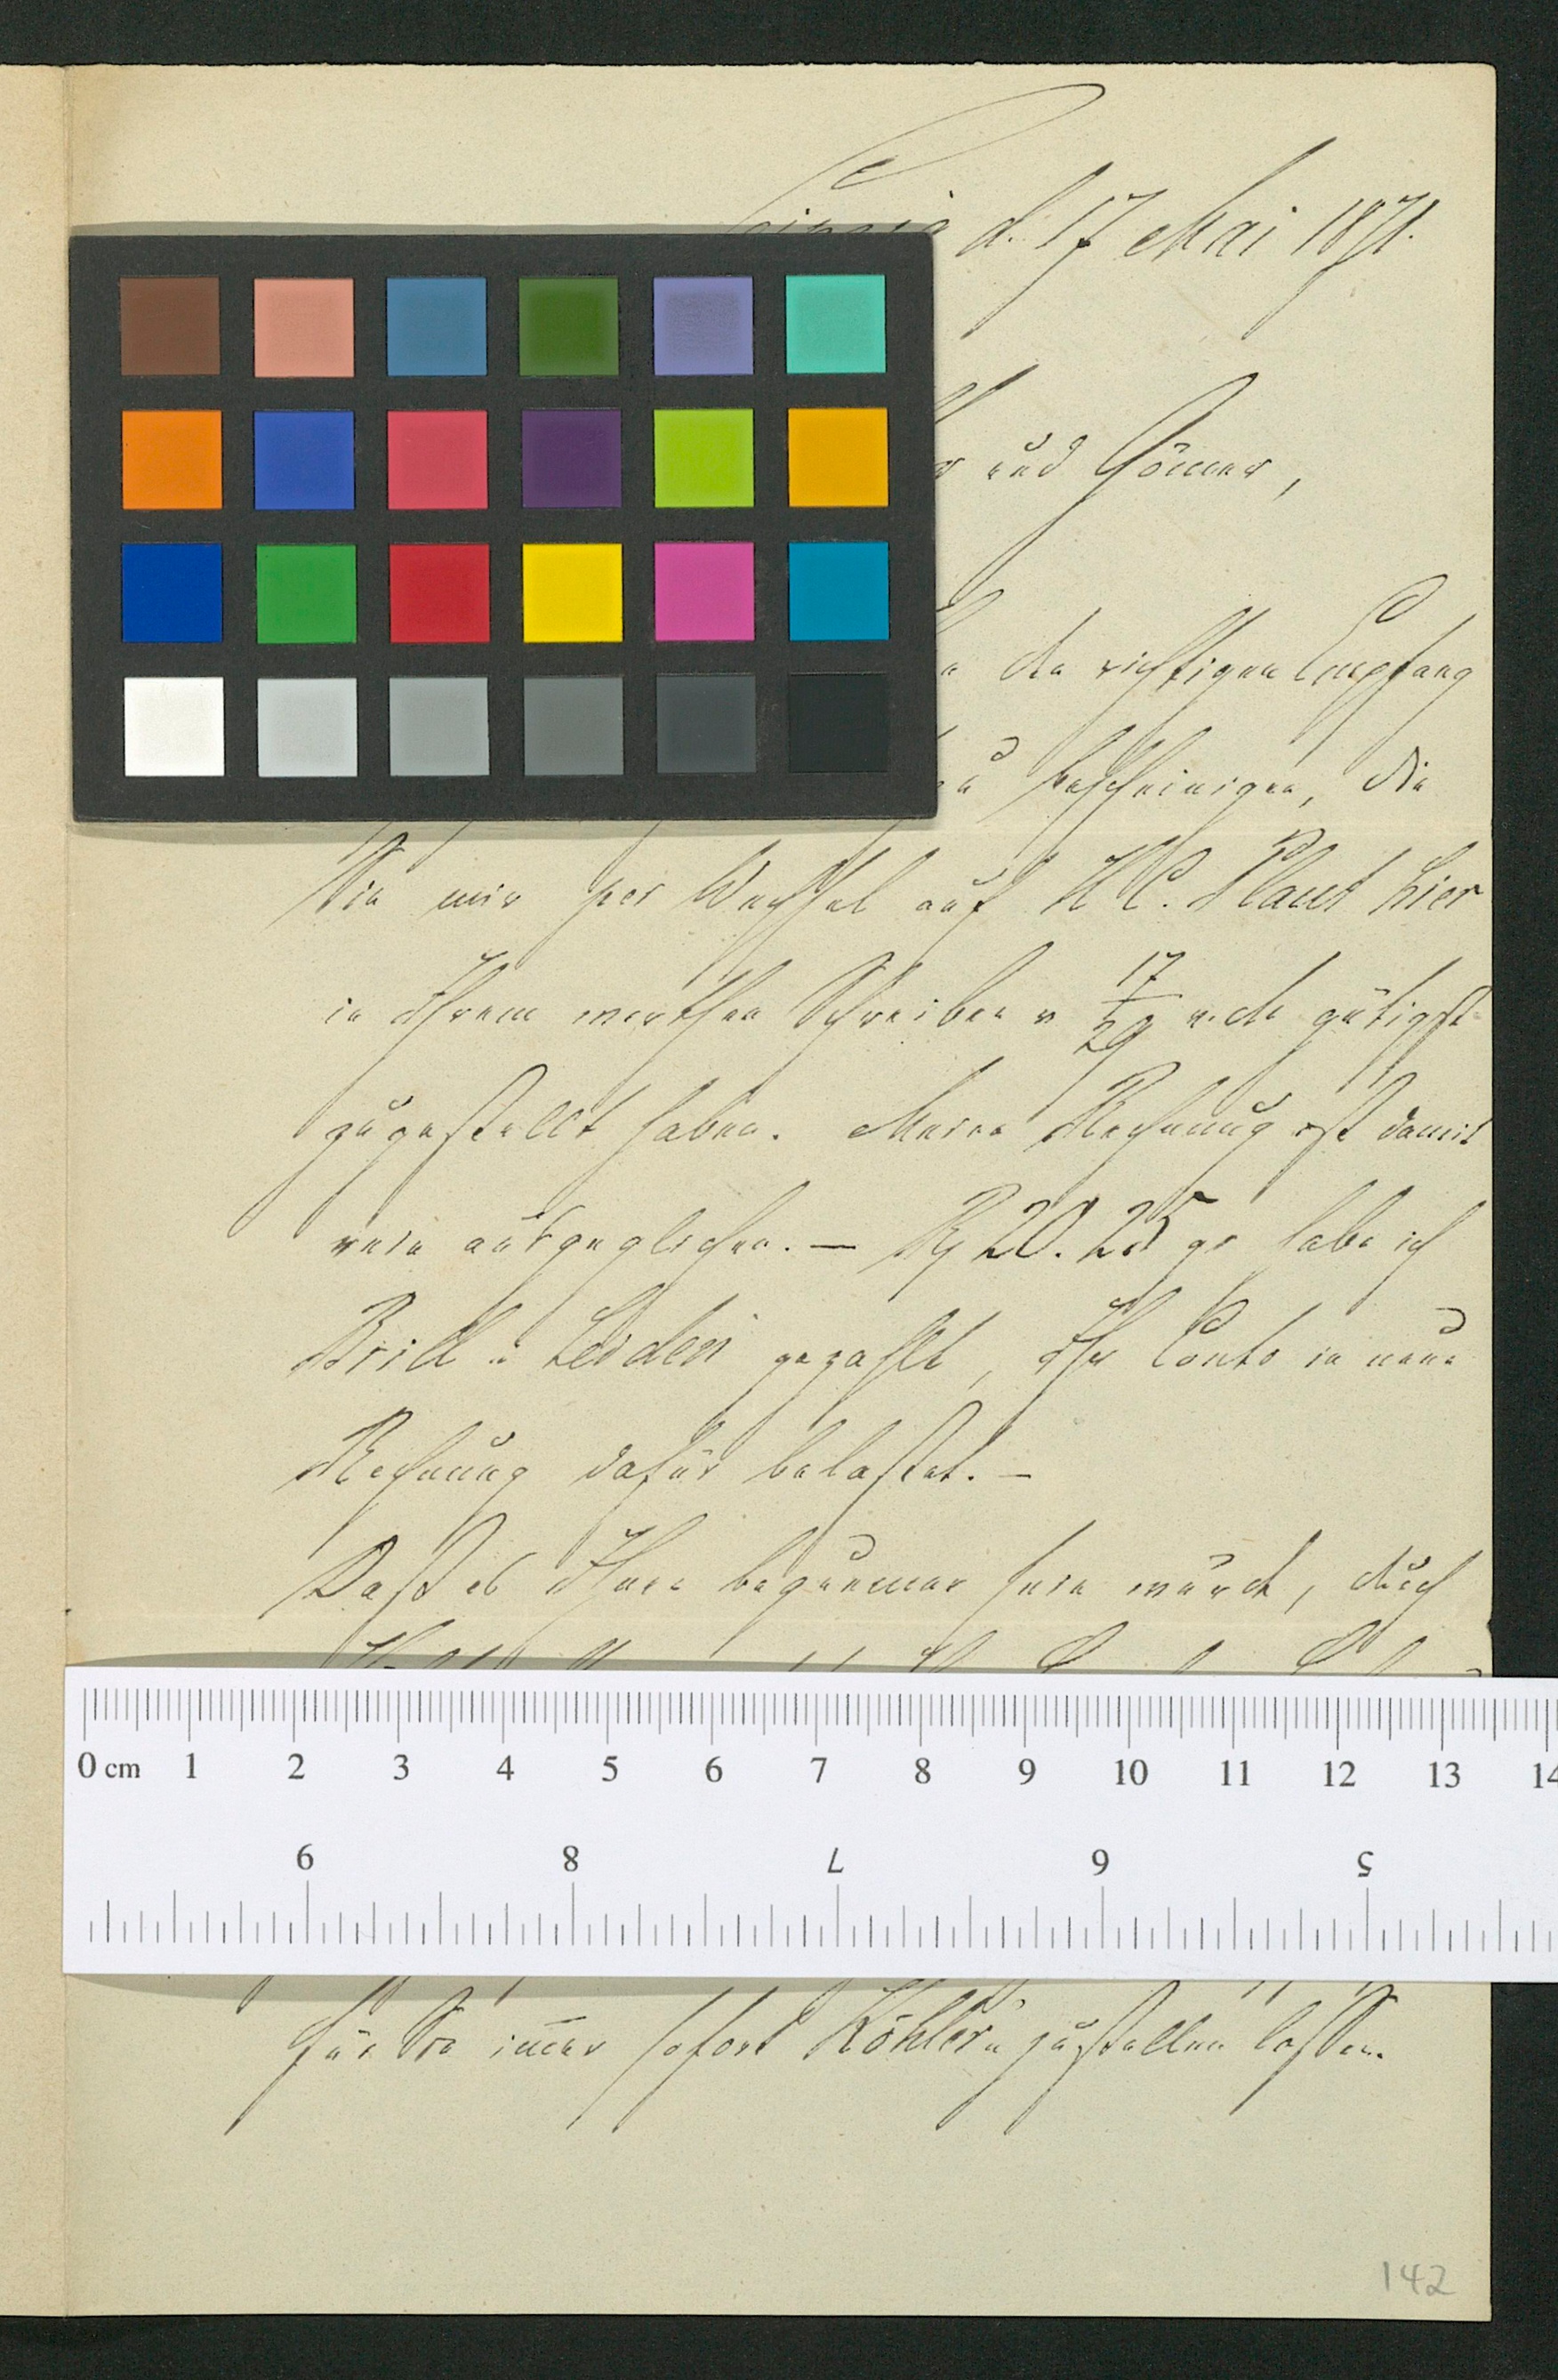 Leipzig d. 17 Mai 1871.
und Gönner,
den richtigen Empfang
zu bescheinigen, die
Sie mir per Wechsel auf H. C. Plaut hier
in Ihrem werthen Schreiben v 17/29 gütigst
zugestellt haben. Meine Rechnung ist damit
rein ausgeglichen. — Rʒ 20. 25 gr habe ich
Brill in Leiden gezahlt, Ihr Conto in neue
Rechnung dafür belastet. —
Daß es Ihnen bequemer sein würde, durch
0 cm 1 2 3 4 5 6 7 8 9 10 11 12 13 14
9 8 7 6 5
für Sie immer sofort Köhler'n zustellen lassen.
142